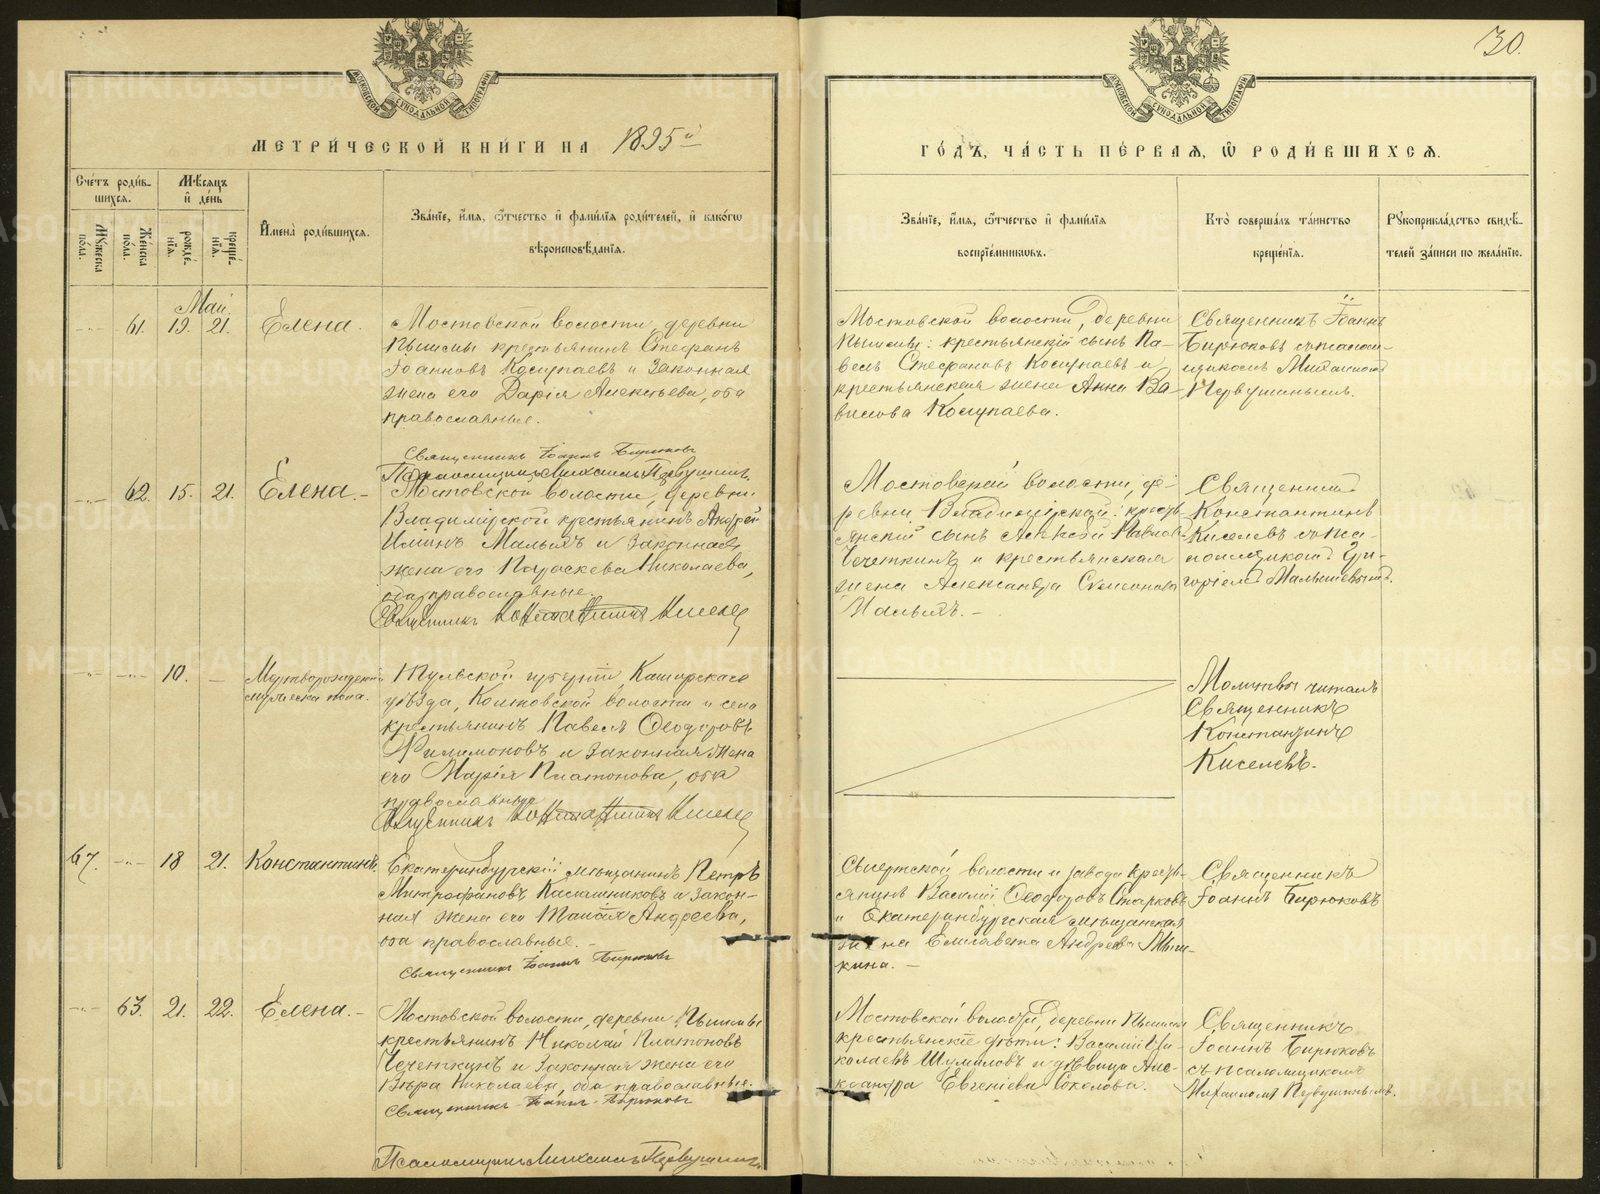 30.
МЕТРИ́ЧЕСКОЙ КНИ́ГИ НА 1895й
ГО́ДЪ, ЧА́СТЬ ПЕ́РВАЯ, Ѽ РОДИ́ВШИХСЯ.
Сче́тъ роди́в-
шихся.
Мѣ́сяцъ
и҆ де́нь
Мꙋ́жеска
по́ла.
Же́нска
по́ла.
рожде́-
нїя.
креще́-
нїя.
И҆мена̀ роди́вшихся.
Зва́нїе, и҆́мя, ѻ҆́тчество и҆ фами́лїя роди́телей, и҆ како́гѡ
вѣроисповѣ́данїя.
Зва́нїе, и҆́мя, ѻ҆́тчество и҆ фами́лїя
воспрїе́мникѡвъ.
Кто̀ соверша́лъ та́инство
креще́нїя.
Рꙋкоприкла́дство свидѣ́-
телей за́писи по жела́нїю.
Май
61. 19. 21. Елена.
Мостовской волости, деревни
Пышмы крестьянинъ Стефанъ
Іоанновъ Косупаевъ и законная
жена его Дарія Алексѣева, оба
православные.
Священникъ Іоаннъ Бирюковъ
Псаломщикъ Михаилъ Первушинъ.
Мостовской волости, деревни
Пышмы: крестьянскій сынъ Па-
велъ Стефановъ Косупаевъ и
крестьянская жена Анна Ва-
вилова Косупаева.
Священникъ Іоаннъ
Бирюковъ съ псалом-
щикомъ Михаиломъ
Первушинымъ.
62. 15. 21. Елена.
Мостовской волости, деревни
Владимірской крестьянинъ Андрей
Ильинъ Малыхъ и законная
жена его Параскева Николаева,
оба православные.
Священникъ Константинъ Киселевъ
Мостовской волости, де-
ревни Владимірской: кресть-
янскій сынъ Алексѣй Павлов
Чечеткинъ и крестьянская
жена Александра Симеонова
Малыхъ.
Священникъ
Константинъ
Киселевъ съ пса-
ломщикомъ Гри-
горіемъ Малышевымъ.
10.
Мертворожденный
мужеска пола.
Тульской губерніи, Каширскаго
уѣзда, Колтовской волости и села
крестьянинъ Павелъ Ѳеодоровъ
Филимоновъ и законная жена
его Марія Платонова, оба
православные
Священникъ Константинъ Киселевъ
Молитвы читалъ
Священникъ
Константинъ
Киселевъ.
67. 18 21. Константинъ.
Екатеринбургскій мѣщанинъ Петръ
Митрофановъ Калашниковъ и закон-
ная жена его Таисія Андреева,
оба православные.
Священникъ Іоаннъ Бирюковъ
Сысертской волости и завода кресть-
янинъ Василій Ѳеодоровъ Старковъ
и Екатеринбургская мѣщанская
жена Елисавета Андреева Мыш-
кина.
Священникъ
Іоаннъ Бирюковъ
63. 21. 22. Елена.
Мостовской волости, деревни Пышмы
крестьянинъ Николай Платоновъ
Чечеткинъ и законная жена его
Вѣра Николаева, оба православные.
Священникъ Іоаннъ Бирюковъ
Псаломщикъ Михаилъ Первушинъ.
Мостовской волости, деревни Пышмы
крестьянскіе дѣти: Василій Ни-
колаевъ Шумиловъ и дѣвица Алек-
сандра Евгеніева Соколова.
Священникъ
Іоаннъ Бирюковъ
съ псаломщикомъ
Михаиломъ Первушинымъ.